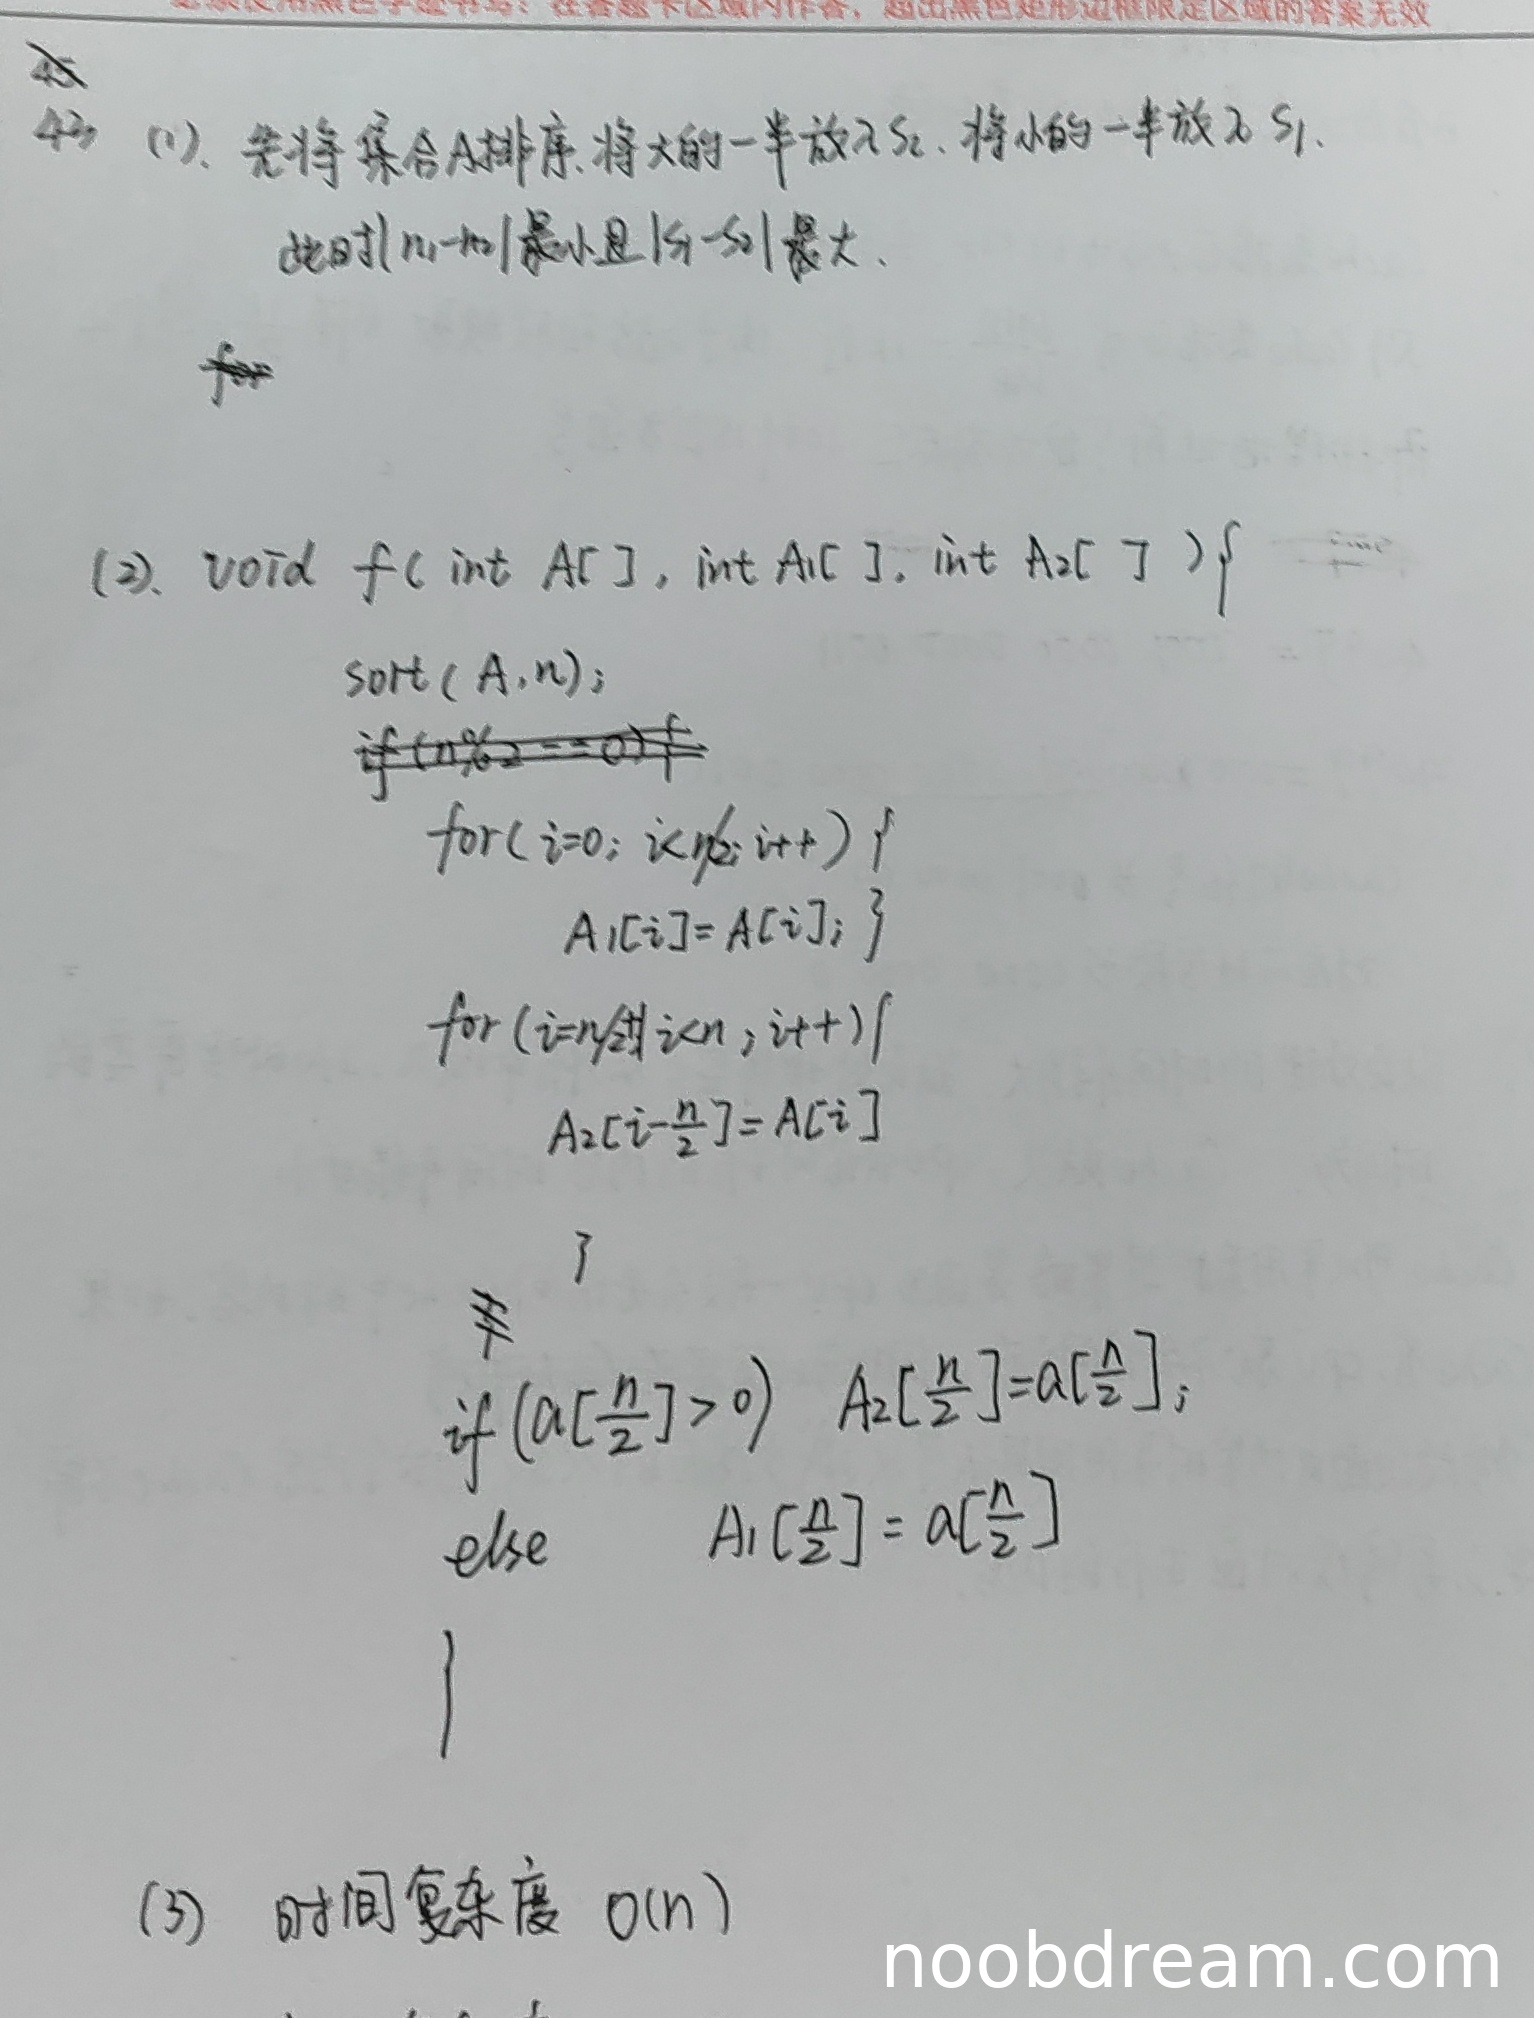 必须使用黑色字迹书写：在答题卡区域内作答，超出黑色矩形边框限定区域的答案无效
45
43 (1). 先将集合A排序.将大的一半放入S2.将小的一半放入S1.
此时|n1-n2|最小且|S1-S2|最大.
for
(2). void f( int A[ ], int A1[ ], int A2[ ] ){
sort( A,n);
if (n%2==0){
for( i=0; i<n/2; i++){
A1[i]=A[i]; }
for (i=n/2+1 i<n ; i++){
A2[i-n/2]=A[i]
}
if (a[n/2]>0) A2[n/2]=a[n/2];
else A1[n/2]=a[n/2]
}
(3) 时间复杂度 O(n)
noobdream.com